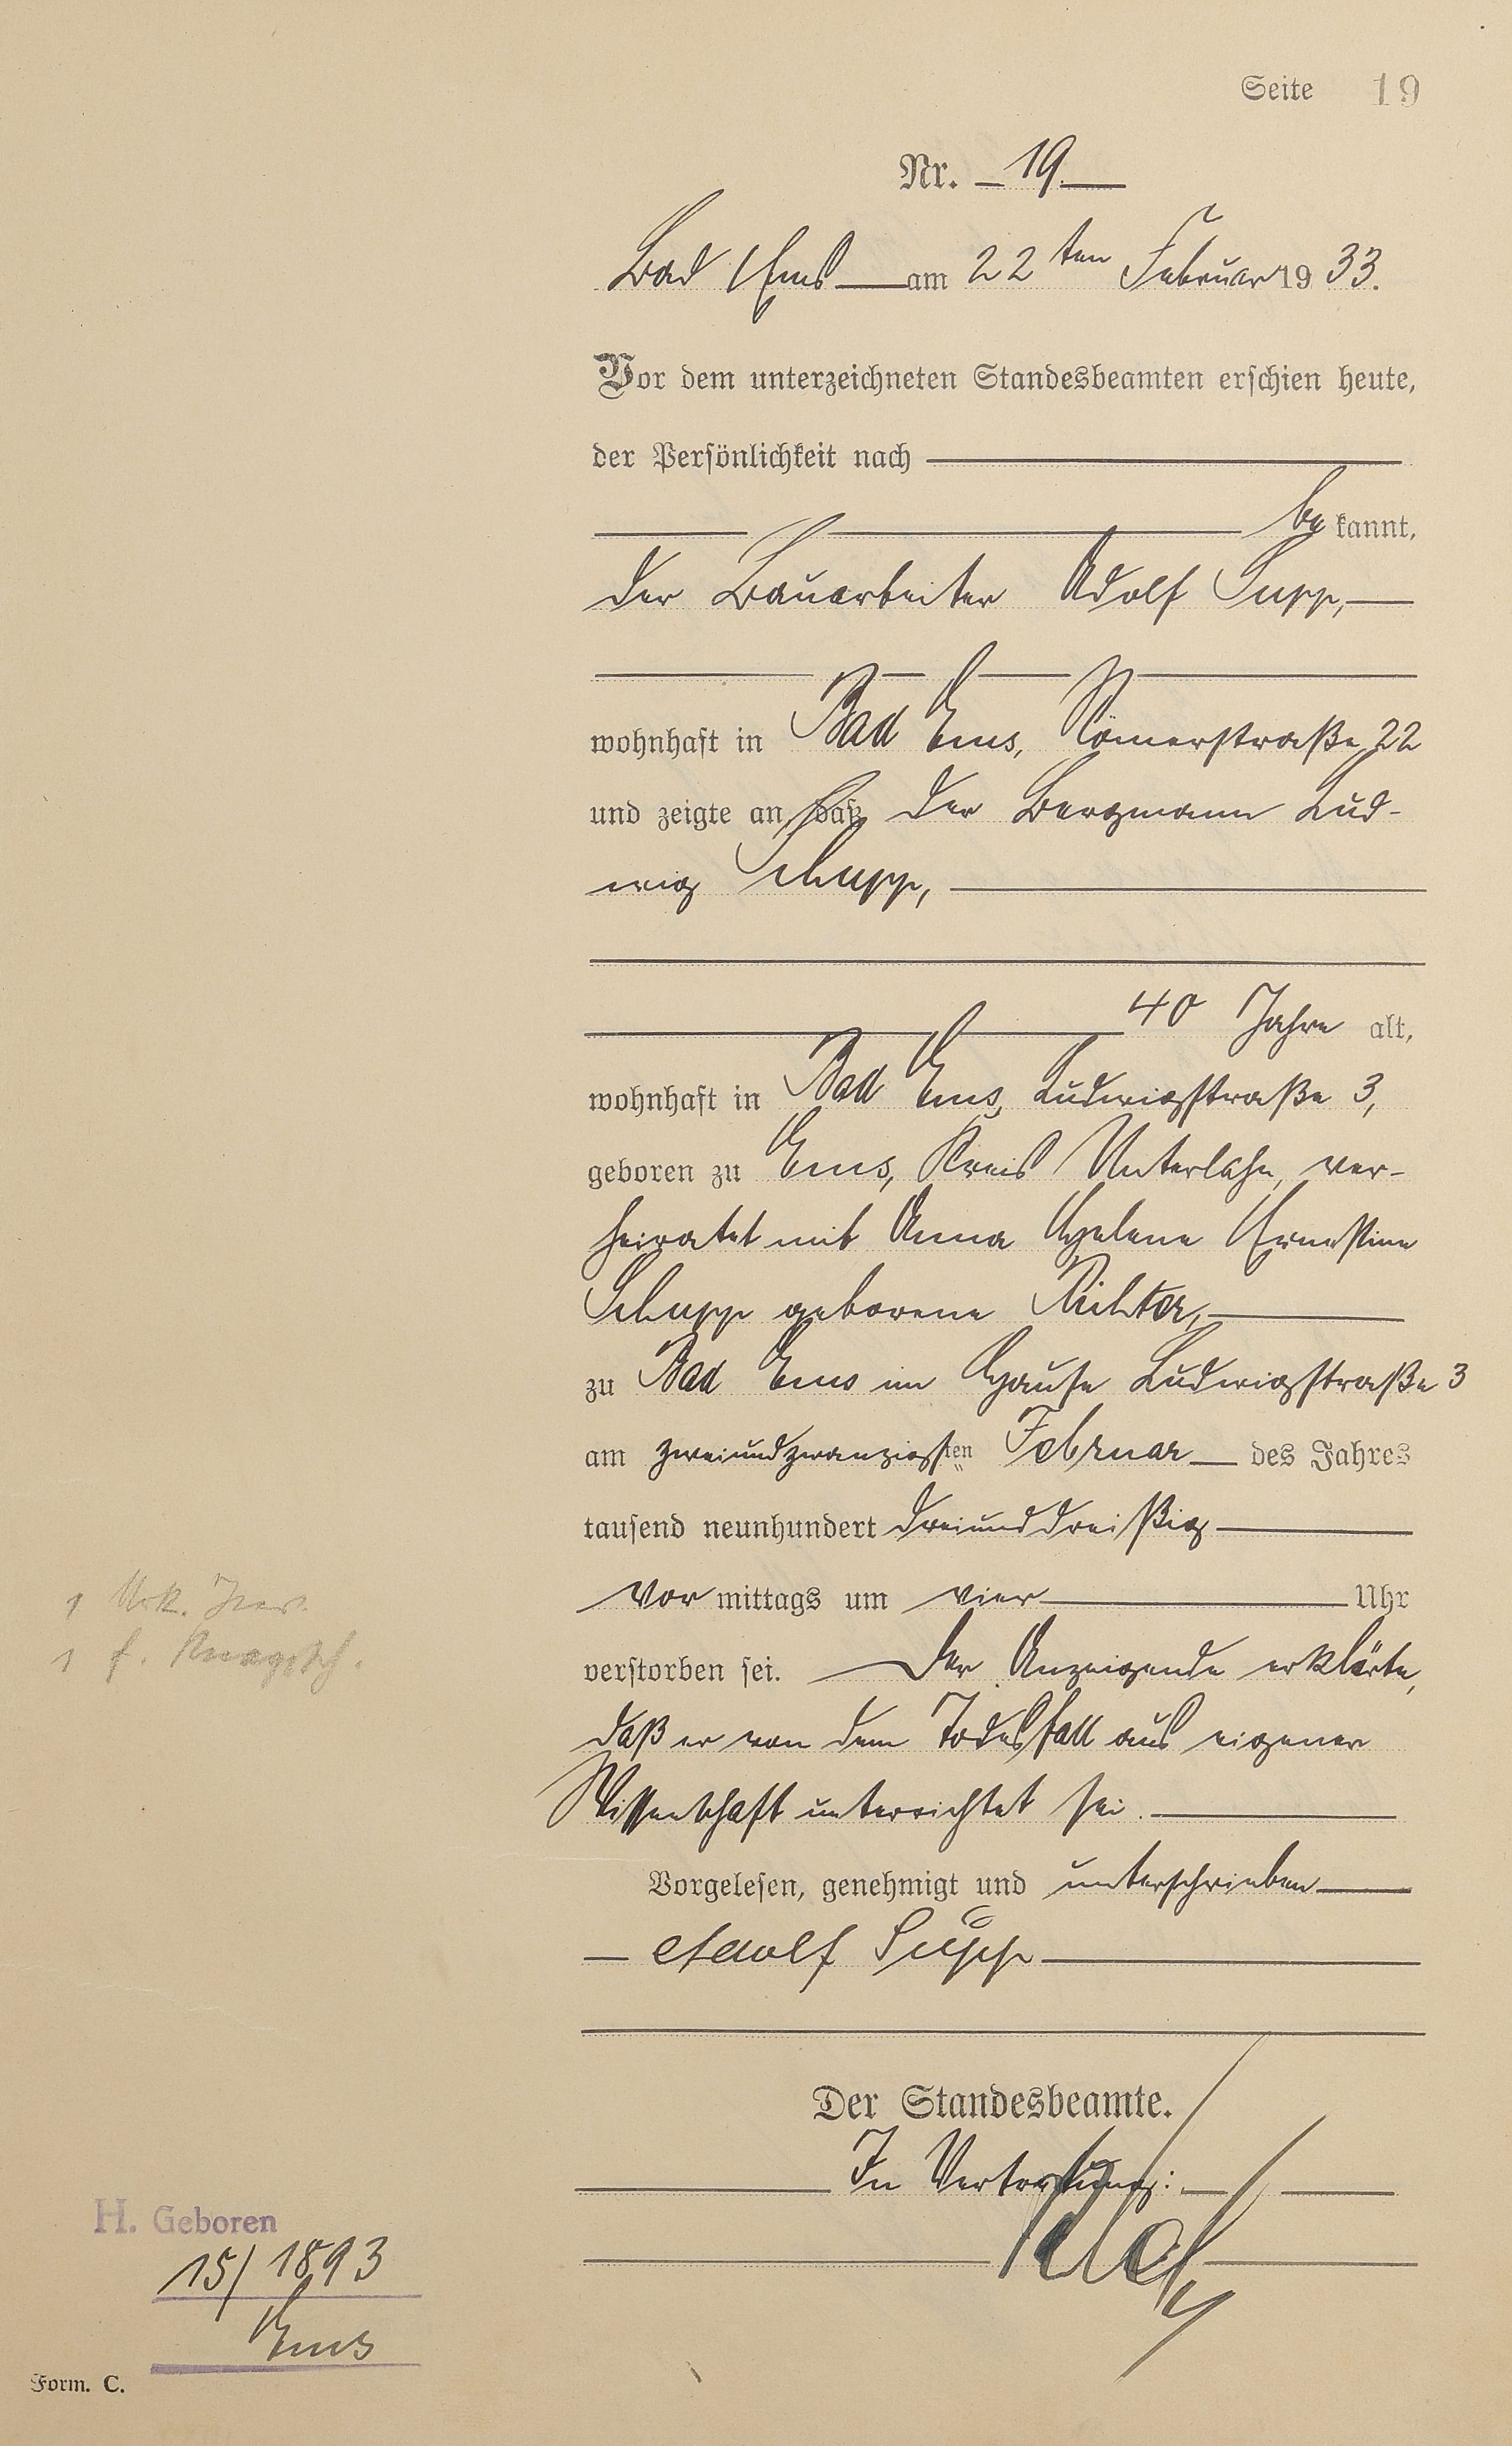 Seite 19
Nr. 19.
Bad Ems am 22ten Februar 1933.
Vor dem unterzeichneten Standesbeamten erschien heute,
der Persönlichkeit nach
bekannt,
der Bauarbeiter Adolf Supp,
wohnhaft in Bad Ems, Römerstraße 22
und zeigte an, daß der Bergmann Lud-
wig Schupp,
40 Jahre alt,
wohnhaft in Bad Ems, Ludwigstraße 3,
geboren zu Ems, Kreis Unterlahn, ver-
heiratet mit Anna Helene Ernestine
Schupp geborene Richter,
zu Bad Ems im Hause Ludwigstraße 3
am zweiundzwanzigsten Februar des Jahres
tausend neunhundert dreiunddreißig
vor mittags um vier Uhr
verstorben sei. Der Anzeigende erklärte,
daß er von dem Todesfall aus eigener
Wissenschaft unterrichtet sei.
Vorgelesen, genehmigt und unterschrieben
Adolf Supp
Der Standesbeamte.
In Vertretung:
1 Urk.
1 f.
H. Geboren
15/1893
Ems
Form. C.